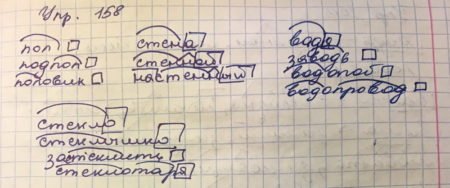 Упр. 158
пол
подпол
половик
стена
стенной
настенный
вода
заводь
водопой
водопровод
стекло
стеклышко
застеклить
стеклотара